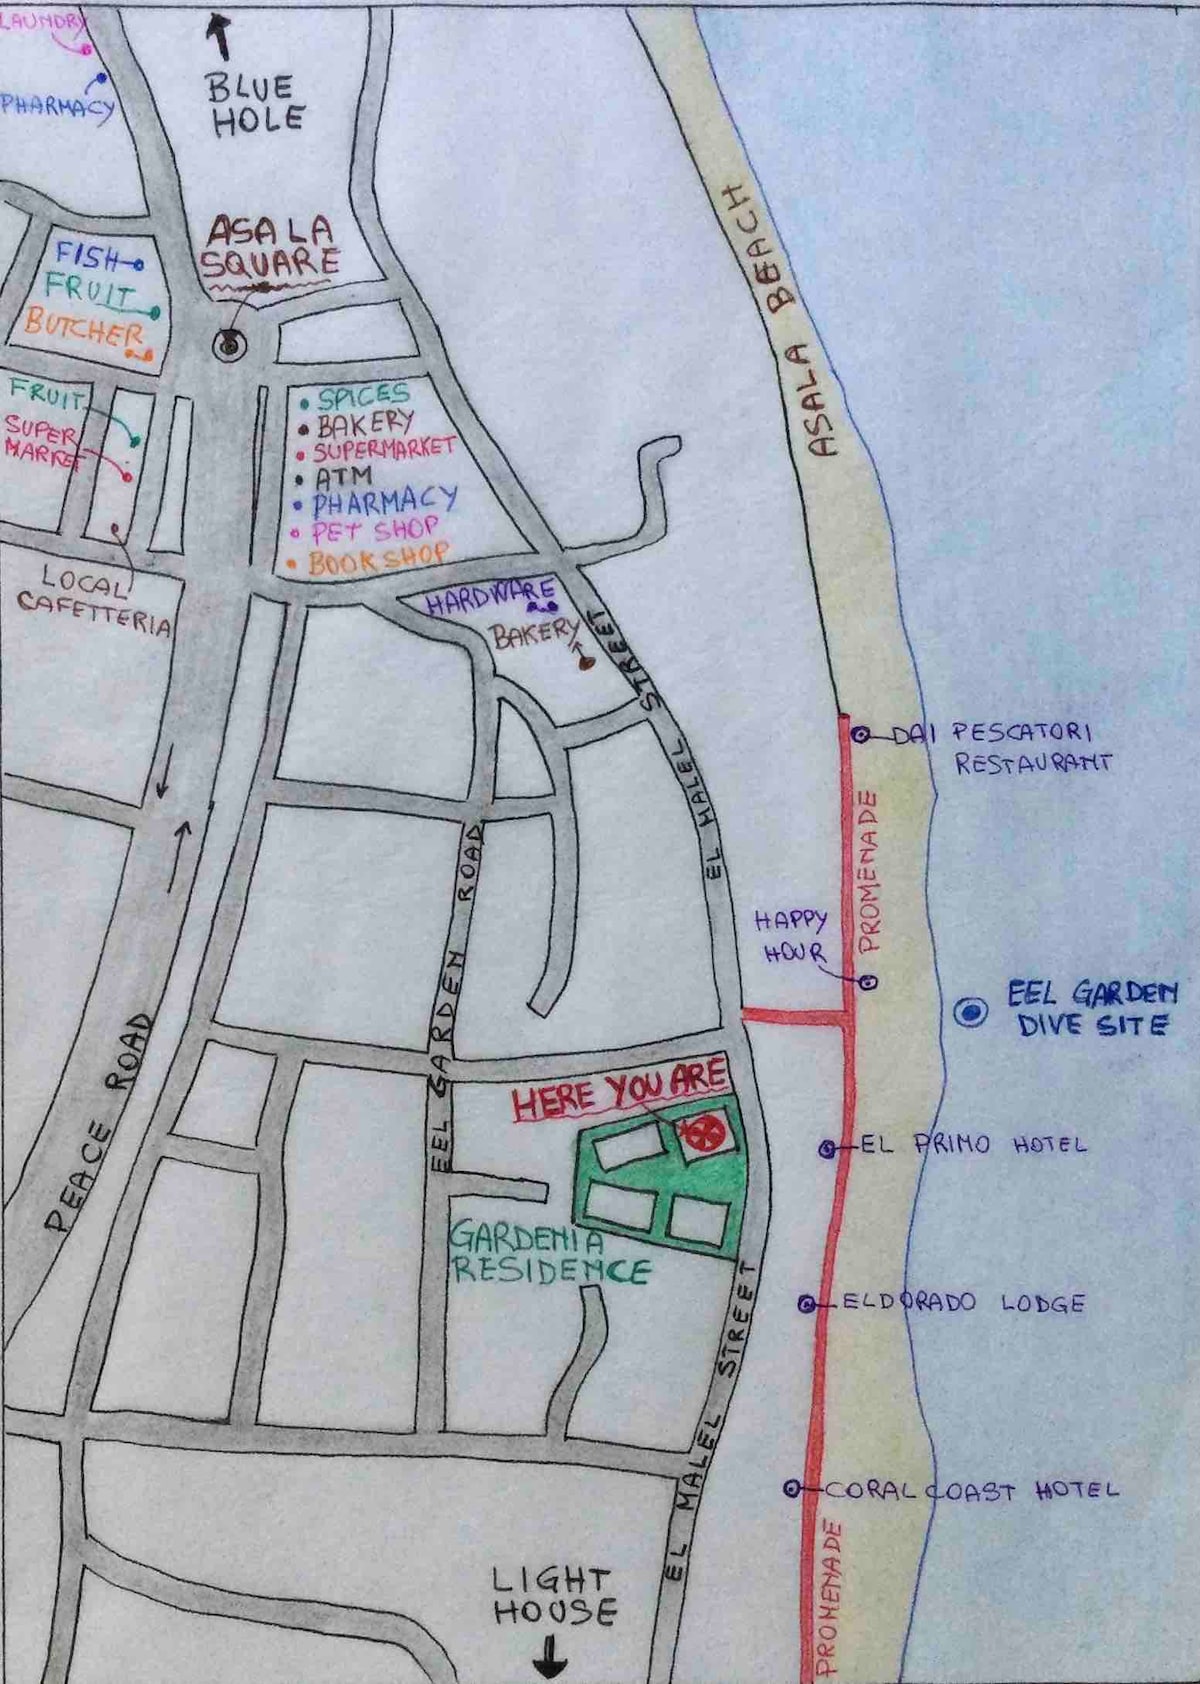 LAUNDRY
PHARMACY
BLUE
HOLE
ASALA
SQUARE
FISH
FRUIT
BUTCHER
FRUIT
SUPER
MARKET
LOCAL
CAFETTERIA
SPICES
BAKERY
SUPERMARKET
ATM
PHARMACY
PET SHOP
BOOKSHOP
HARDWARE
BAKERY
ASALA BEACH
EL MALEL STREET
DAI PESCATORI
RESTAURANT
PROMENADE
HAPPY
HOUR
EEL GARDEN
DIVE SITE
EEL GARDEN ROAD
PEACE ROAD
HERE YOU ARE
GARDENIA
RESIDENCE
EL PRIMO HOTEL
ELDORADO LODGE
EL MALEL STREET
CORAL COAST HOTEL
PROMENADE
LIGHT
HOUSE